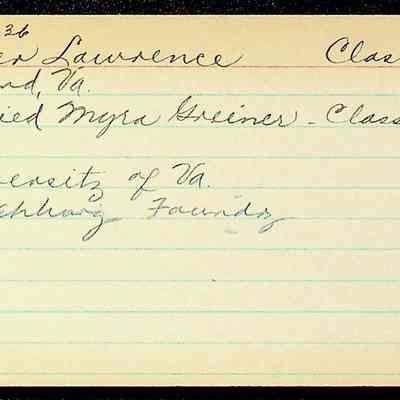 36
er Lawrence Clas
rd, Va.
ied Myra Greiner - Class
versity of Va.
chburg Foundry